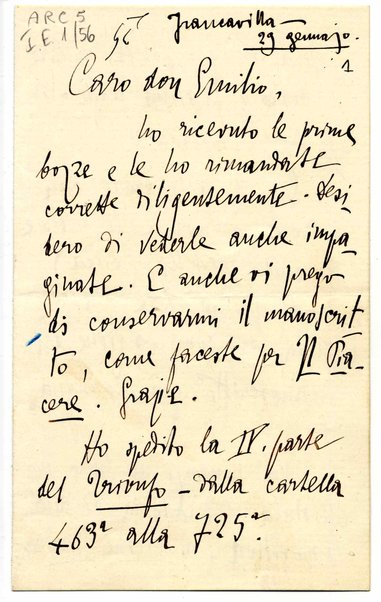 ARC 5
I.E. 1/56
56
Francavilla –
29 gennajo.
1
Caro don Emilio,
ho ricevuto le prime
bozze e le ho rimandate
corrette diligentemente. Desi
dero di vederle anche impa
ginate. E anche vi prego
di conservarmi il manoscrit
to, come faceste per Il Pia-
cere. Grazie.
Ho spedito la IV. parte
del Trionfo – dalla cartella
463ª alla 725ª.